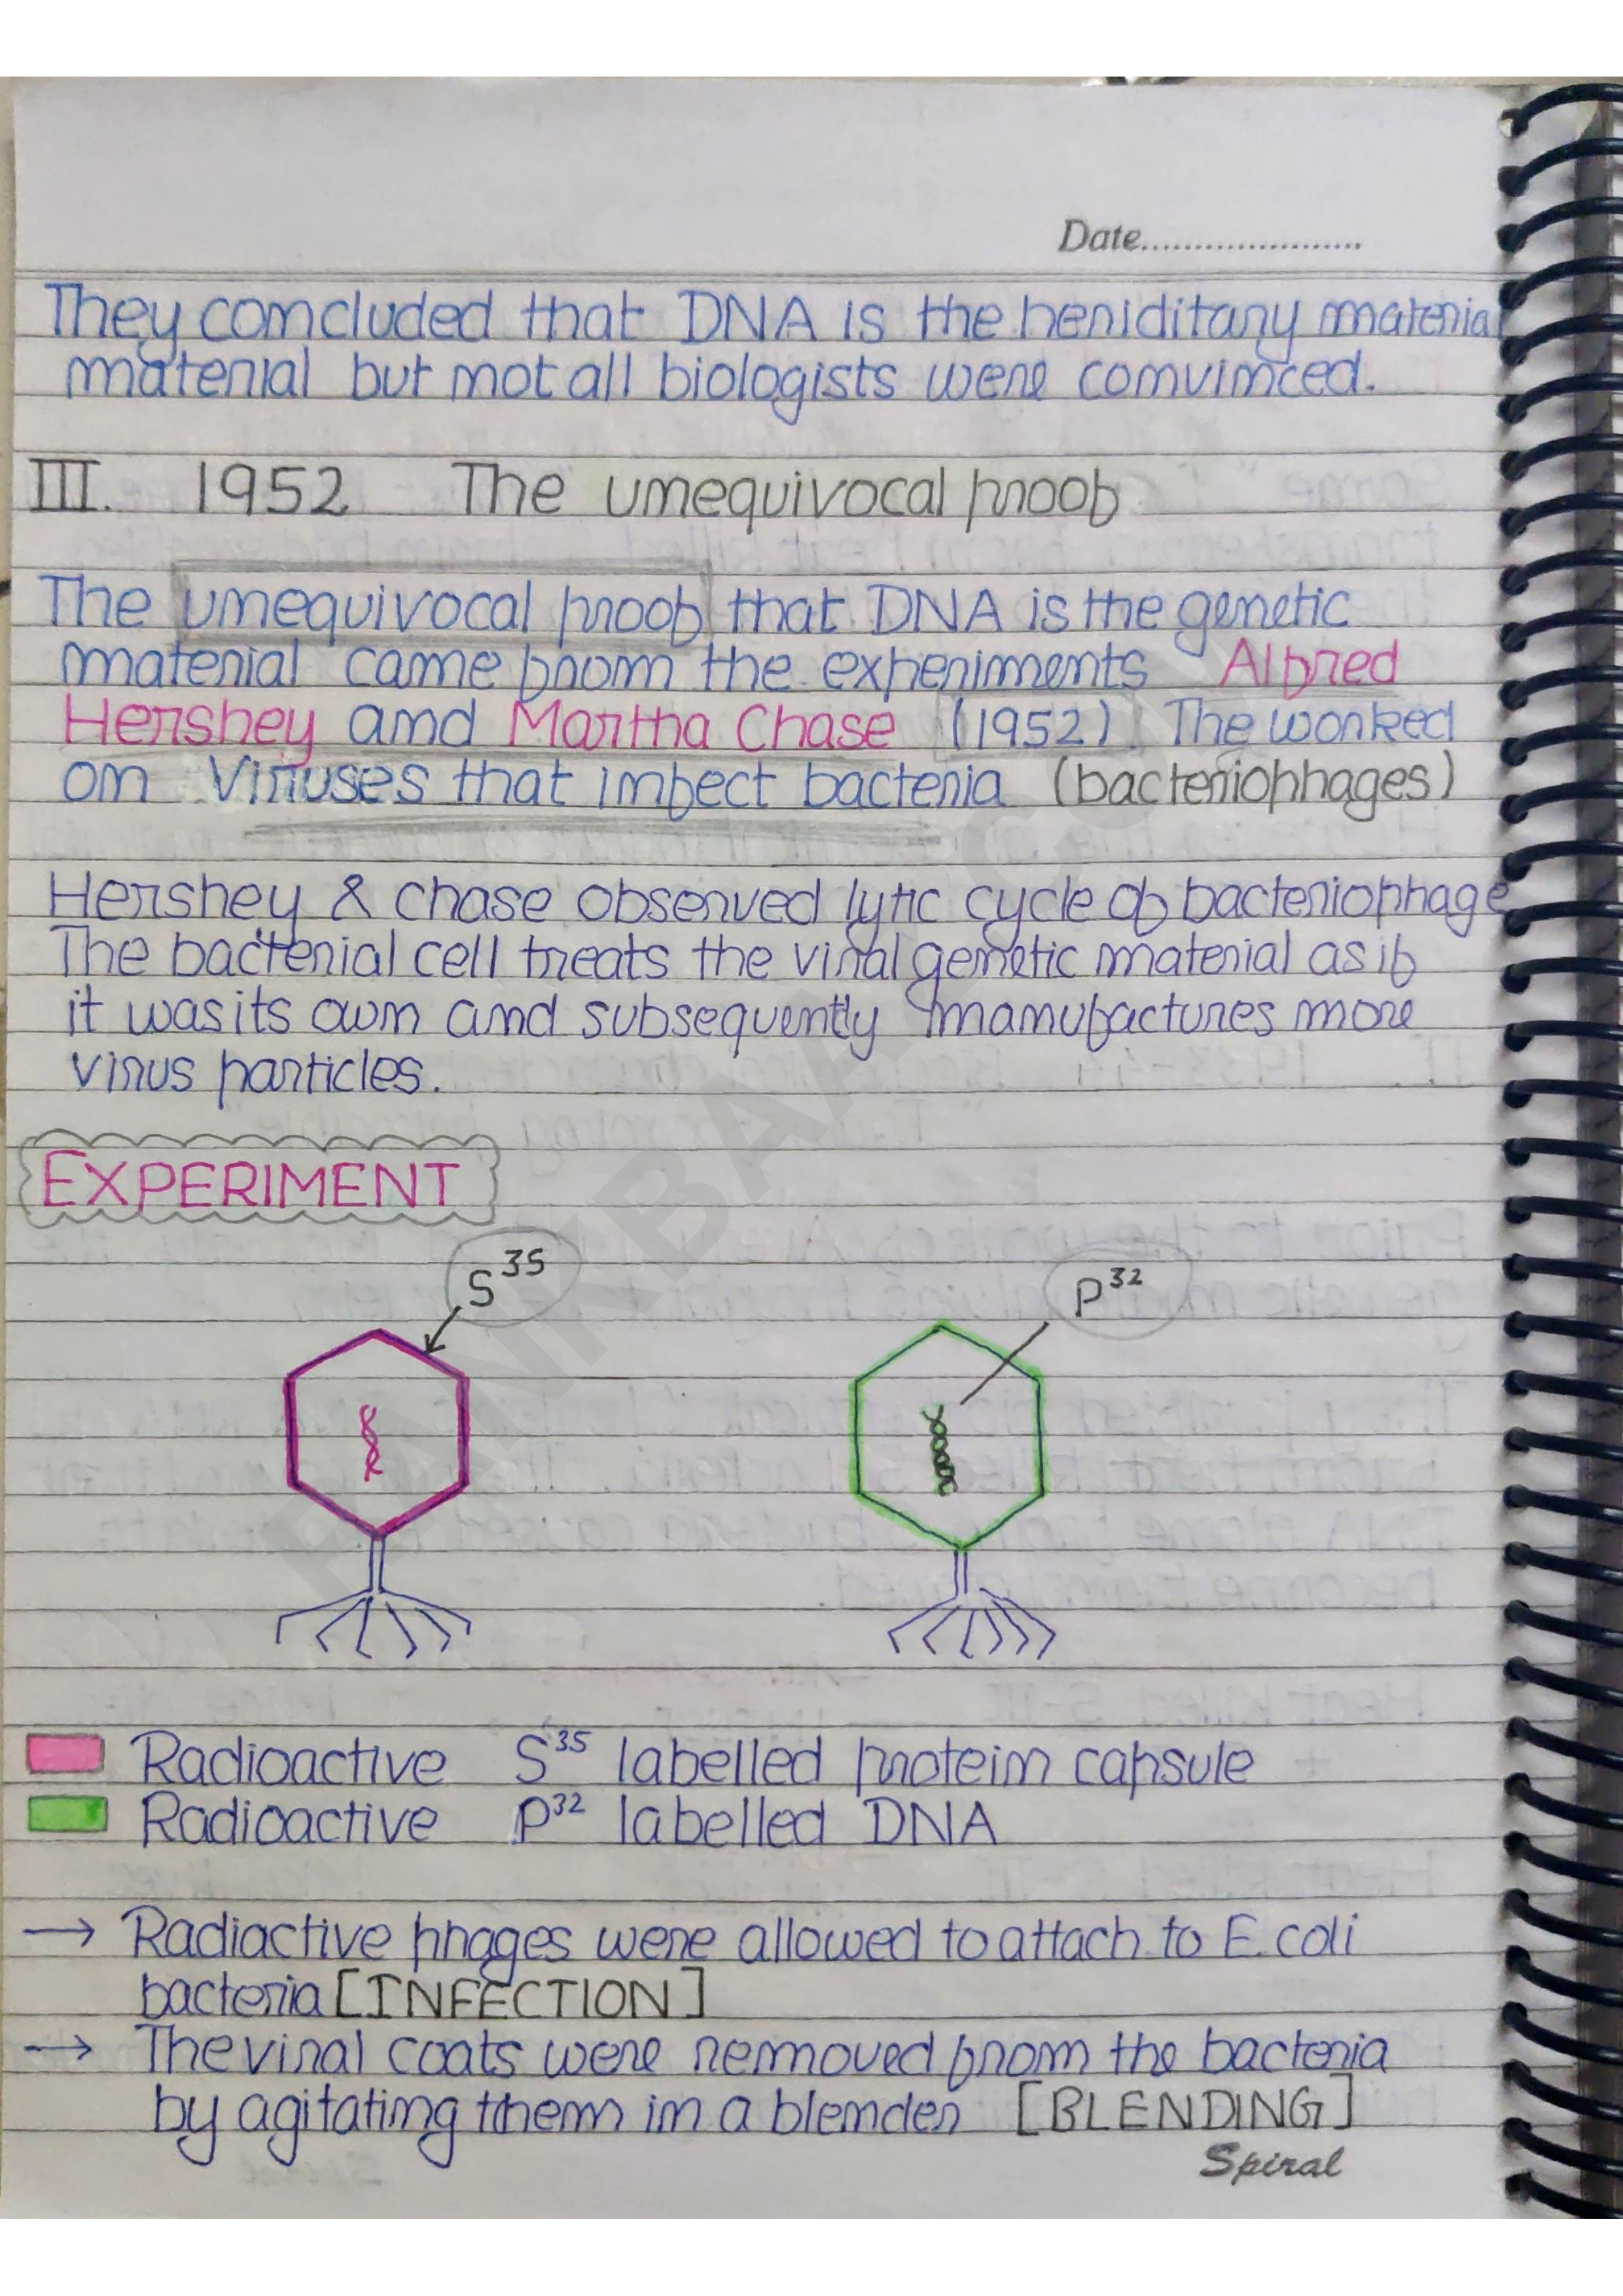 Date......................
They concluded that DNA is the heriditary material
material but not all biologists were convinced.
III. 1952 The unequivocal proof
The unequivocal proof that DNA is the genetic
material came from the experiments Alfred
Hershey and Martha Chase (1952). The worked
on Viruses that infect bacteria (bacteriophages)
Hershey & chase observed lytic cycle of bacteriophage
The bacterial cell treats the viral genetic material as if
it was its own and subsequently manufactures more
virus particles.
EXPERIMENT
S³⁵ P³²
Radioactive S³⁵ labelled protein capsule
Radioactive P³² labelled DNA
→ Radiactive phages were allowed to attach to E. coli
bacteria [INFECTION]
→ The viral coats were removed from the bacteria
by agitating them in a blender [BLENDING]
Spiral